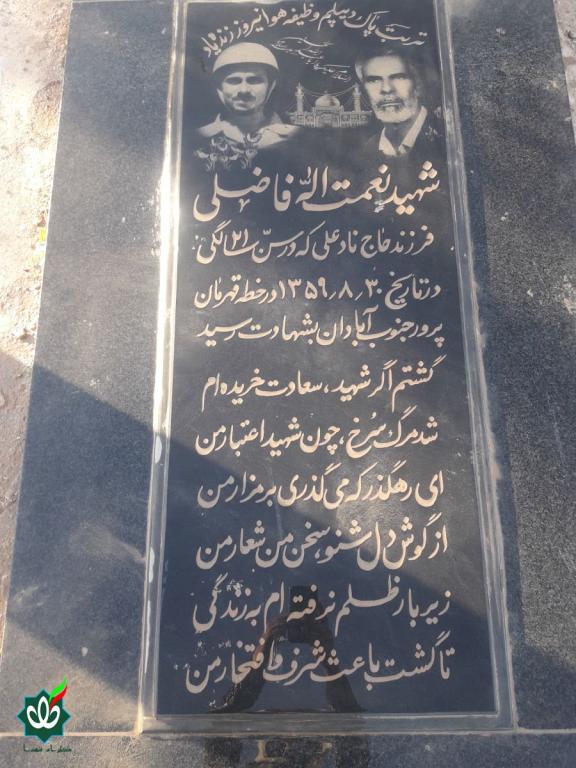 تربت پاک دیپلم وظیفه هوانیروز زنده یاد
شهید نعمت اله فاضلی
فرزند حاج نادعلی که در سن ۲۱ سالگی
در تاریخ ۱۳۵۹٫۸٫۳۰ در خطه قهرمان
پرور جنوب آبادان بشهادت رسید
گشتم اگر شهید، سعادت خریده ام
شد مرگ سُرخ، چون شهید اعتبار من
ای رهگذر که می گذری بر مزار من
از گوش دل شنو، سخن من شعار من
زیر بار ظلم نرفته ام به زندگی
تا گشت باعث شرف و افتخار من